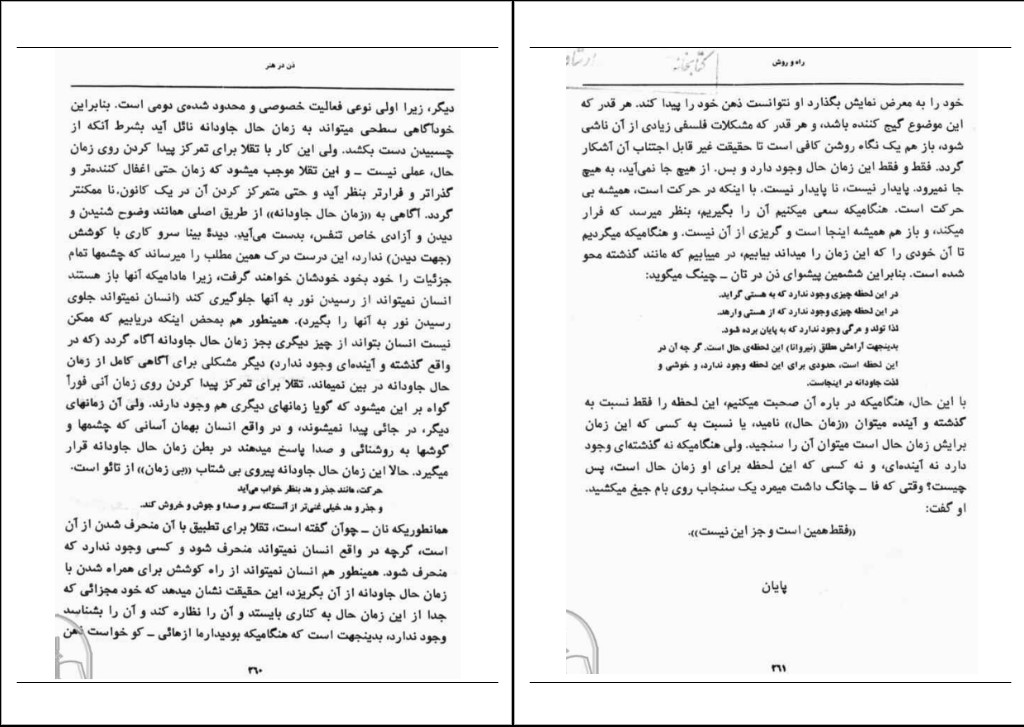 ذن در هنر
دیگر، زیرا اولی نوعی فعالیت خصوصی و محدود شده‌ی دومی است. بنابراین
خودآگاهی سطحی میتواند به زمان حال جاودانه نائل آید بشرط آنکه از
چسبیدن دست بکشد. ولی این کار با تقلا برای تمرکز پیدا کردن روی زمان
حال، عملی نیست ـ و این تقلا موجب میشود که زمان حتی اغفال کننده‌تر و
گذراتر و فرارتر بنظر آید و حتی متمرکز کردن آن در یک کانون.نا ممکنتر
گردد. آگاهی به ((زمان حال جاودانه)) از طریق اصلی همانند وضوح شنیدن و
دیدن و آزادی خاص تنفس، بدست می‌آید. دیدهٔ بینا سرو کاری با کوشش
(جهت دیدن) ندارد، این درست درک همین مطلب را میرساند که چشمها تمام
جزئیات را خود بخود خودشان خواهند گرفت، زیرا مادامیکه آنها باز هستند
انسان نمیتواند از رسیدن نور به آنها جلوگیری کند (انسان نمیتواند جلوی
رسیدن نور به آنها را بگیرد). همینطور هم بمحض اینکه دریابیم که ممکن
نیست انسان بتواند از چیز دیگری بجز زمان حال جاودانه آگاه گردد (که در
واقع گذشته و آینده‌ای وجود ندارد) دیگر مشکلی برای آگاهی کامل از زمان
حال جاودانه در بین نمیماند. تقلا برای تمرکز پیدا کردن روی زمان آنی فوراً
گواه بر این میشود که گویا زمانهای دیگری هم وجود دارند. ولی آن زمانهای
دیگر، در جائی پیدا نمیشوند، و در واقع انسان بهمان آسانی که چشمها و
گوشها به روشنائی و صدا پاسخ میدهند در بطن زمان حال جاودانه قرار
میگیرد. حالا این زمان حال جاودانه پیروی بی شتاب ((بی زمان)) از تائو است.
حرکت، مانند جذر و مد بنظر خواب می‌آید
و جذر و مد خیلی غنی‌تر از آنستکه سر و صدا و جوش و خروش کند.
همانطوریکه نان ـ چوآن گفته است، تقلا برای تطبیق با آن منحرف شدن از آن
است، گرچه در واقع انسان نمیتواند منحرف شود و کسی وجود ندارد که
منحرف شود. همینطور هم انسان نمیتواند از راه کوشش برای همراه شدن با
زمان حال جاودانه از آن بگریزد، این حقیقت نشان میدهد که خود مجزائی که
جدا از این زمان حال به کناری بایستد و آن را نظاره کند و آن را بشناسد
وجود ندارد، بدینجهت است که هنگامیکه بودیدارما ازهائی ـ کو خواست ذهن
۳۶۰
راه و روش
کتابخانه
خود را به معرض نمایش بگذارد او نتوانست ذهن خود را پیدا کند. هر قدر که
این موضوع گیج کننده باشد، و هر قدر که مشکلات فلسفی زیادی از آن ناشی
شود، باز هم یک نگاه روشن کافی است تا حقیقت غیر قابل اجتناب آن آشکار
گردد. فقط و فقط این زمان حال وجود دارد و بس. از هیچ جا نمی‌آید، به هیچ
جا نمیرود. پایدار نیست، نا پایدار نیست. با اینکه در حرکت است، همیشه بی
حرکت است. هنگامیکه سعی میکنیم آن را بگیریم، بنظر میرسد که فرار
میکند، و باز هم همیشه اینجا است و گریزی از آن نیست. و هنگامیکه میگردیم
تا آن خودی را که این زمان را میداند بیابیم، در مییابیم که مانند گذشته محو
شده است. بنابراین ششمین پیشوای ذن در تان ـ چینگ میگوید:
در این لحظه چیزی وجود ندارد که به هستی گراید.
در این لحظه چیزی وجود ندارد که از هستی وارهد.
لذا تولد و مرگی وجود ندارد که به پایان برده شود.
بدینجهت آرامش مطلق (نیروانا) این لحظه‌ی حال است. گر چه آن در
این لحظه است، حدودی برای این لحظه وجود ندارد، و خوشی و
لذت جاودانه در اینجاست.
با این حال، هنگامیکه در باره آن صحبت میکنیم، این لحظه را فقط نسبت به
گذشته و آینده میتوان ((زمان حال)) نامید، یا نسبت به کسی که این زمان
برایش زمان حال است میتوان آن را سنجید. ولی هنگامیکه نه گذشته‌ای وجود
دارد نه آینده‌ای، و نه کسی که این لحظه برای او زمان حال است، پس
چیست؟ وقتی که فا ـ چانگ داشت میمرد یک سنجاب روی بام جیغ میکشید.
او گفت:
((فقط همین است و جز این نیست)).
پایان
۳۶۱